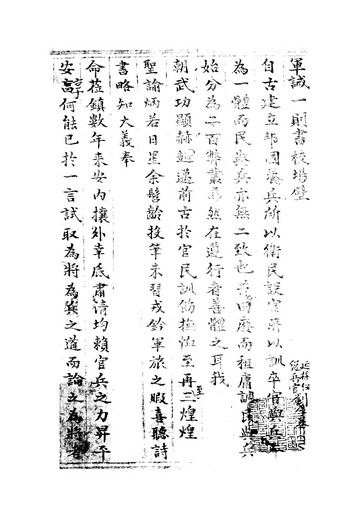 軍誡一則書校場壁
自古建立邦國養兵所以衛民設官所以訓卒官與兵
為一體而民與兵亦無二致也 田廢而租庸 民與兵
始分為二百弊叢焉然在遵行者善體之耳我
朝武功顯赫超邁前古於官民訓飭撫恤至再至三煌煌
聖諭炳若日星余髫齡投筆來習戎鈐軍旅之暇喜聽詩
書略知大義奉
命蒞鎮數年來安內攘外幸底肅清均賴官兵之力昇平
安享何能已於一言試取為將為兵之道而論之為將者